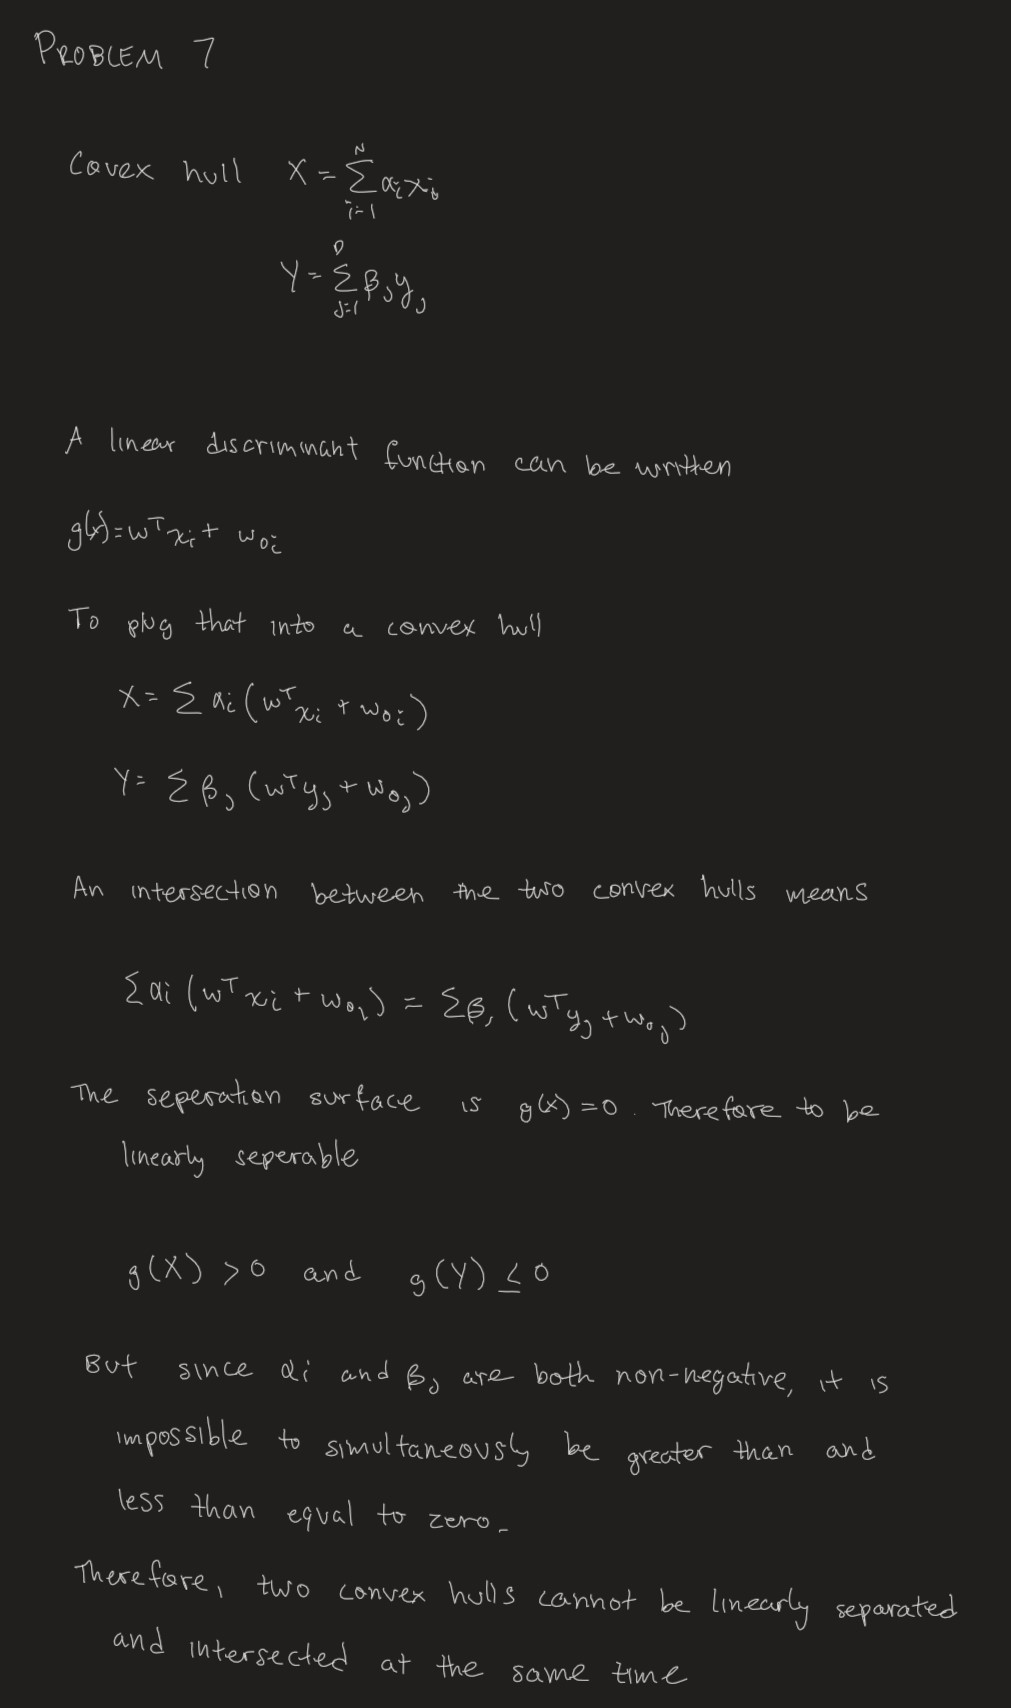 PROBLEM 7
Covex hull X = \sum_{i=1}^{N} α_i x_i
Y = \sum_{j=1}^{D} β_j y_j
A linear discriminant function can be written
g(x) = w^T x_i + w_{0i}
To plug that into a convex hull
X = Σ α_i (w^T x_i + w_{0i})
Y = Σ β_j (w^T y_j + w_{0j})
An intersection between the two convex hulls means
Σ α_i (w^T x_i + w_{0i}) = Σ β_j (w^T y_j + w_{0j})
The seperation surface is g(x) = 0. Therefore to be
linearly seperable
g(X) > 0 and g(Y) ≤ 0
But since α_i and β_j are both non-negative, it is
impossible to simultaneously be greater than and
less than equal to zero.
Therefore, two convex hulls cannot be linearly separated
and intersected at the same time